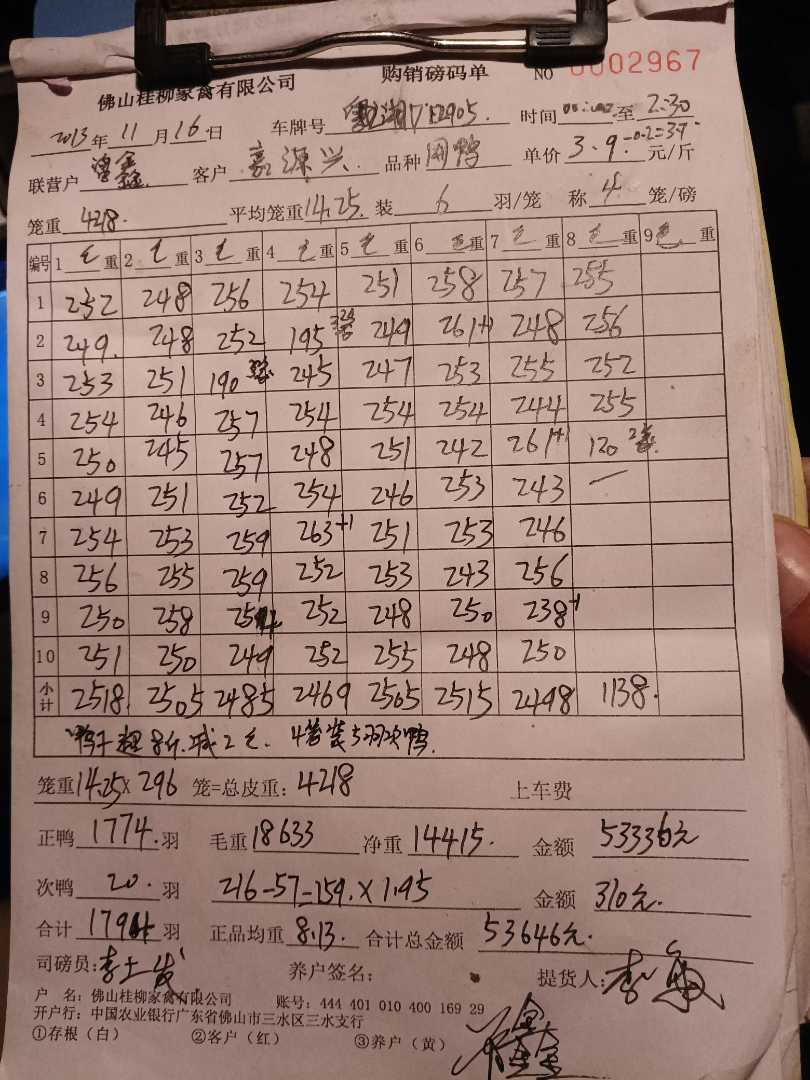 佛山桂柳家禽有限公司 购销磅码单 NO 0002967
2013年11月16日 车牌号 时间 至 2:30
联营户 客户 嘉源兴 品种 闲鸭 单价 3.9.-0.2=3.7 元/斤
笼重 4218. 平均笼重 14.25. 装 6 羽/笼 称 4 笼/磅
编号 1 毛重 2 毛重 3 毛重 4 毛重 5 毛重 6 毛重 7 毛重 8 毛重 9 毛重
1 252 248 256 254 251 258 257 255
2 249. 248 252 195 249 261+1 248 256
3 253 251 190 245 247 253 255 252
4 254 246 257 254 254 254 244 255
5 250 245 257 248 251 242 261+1 120
6 249 251 252 254 246 253 243 —
7 254 253 259 263+1 251 253 246
8 256 255 259 252 253 243 256
9 250 258 254 252 248 250 238-1
10 251 250 249 252 255 248 250
小计 2518. 2505 2485 2469 2505 2515 2498 1138.
鸭子超8斤.减2毛. 4笼装5羽次鸭.
笼重14.25×296 笼=总皮重:4218 上车费
正鸭 1774. 羽 毛重 18633 净重 14415. 金额 53336元
次鸭 20. 羽 216-57=159.×1.95 金额 310元.
合计 1794 羽 正品均重 8.13. 合计总金额 53646元.
司磅员:李士发 养户签名: 提货人:
户 名:佛山桂柳家禽有限公司 账号:444 401 010 400 169 29
开户行:中国农业银行广东省佛山市三水区三水支行
①存根(白) ②客户(红) ③养户(黄)